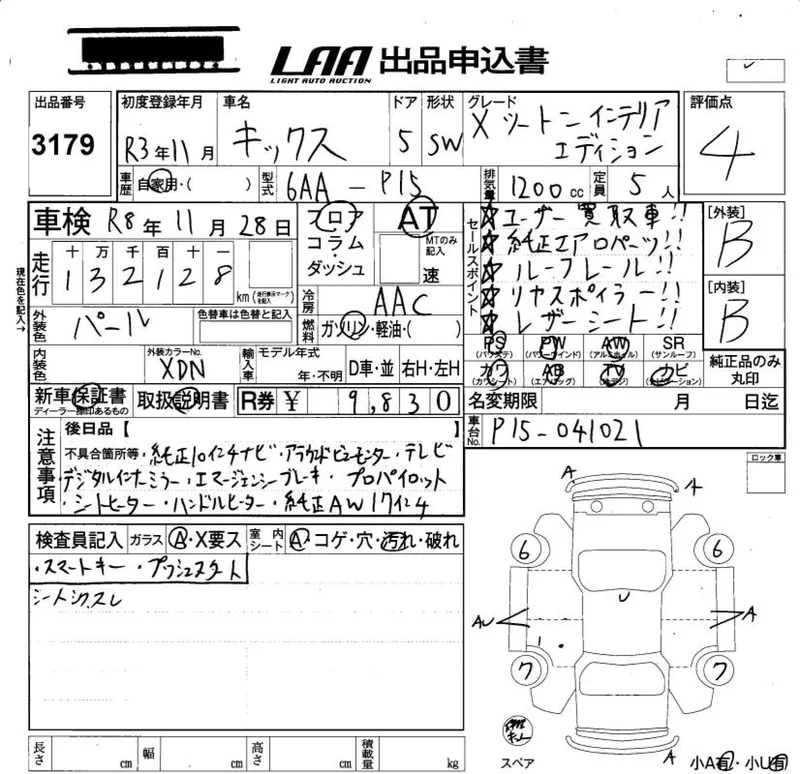 LAA 出品申込書
LIGHT AUTO AUCTION
出品番号 3179
初度登録年月 R3年11月
車名 キックス
ドア 5
形状 SW
グレード X ツートーンインテリア
エディション
評価点 4
車歴 自家用・( )
型式 6AA-P15
排気量 1200cc
定員 5人
車検 R8年11月28日
フロア
コラム
・
ダッシュ
AT
MTのみ記入
速
セールスポイント
☆ユーザー買取車!!
☆純正エアロパーツ!!
☆ルーフレール!!
☆リヤスポイラー!!
☆レザーシート!!
[外装] B
[内装] B
現在色を記入→
走行 十万千百十一
132128 km (走行表示マークを記入)
冷房 AAC
外装色 パール
色替車は色替と記入
燃料 ガソリン・軽油・( )
PS (パワステ) PW (パワーウインド) AW (アルミホイル) SR (サンルーフ)
カワ (カワシート) AB (エアバッグ) TV (ナビ) カビ
純正品のみ丸印
内装色
外装カラーNo. XDN
輸入車
モデル年式 年・不明
D車・並 右H・左H
新車保証書 ディーラー捺印あるもの
取扱説明書
R券 ¥ 9,830
名変期限 月 日迄
車台No. P15-041021
注意事項
後日品【
不具合箇所等・純正10インチナビ・アラウンドビューモニター・テレビ
デジタルインナーミラー・エマージェンシーブレーキ・プロパイロット
・シートヒーター・ハンドルヒーター・純正AW17インチ
ロック車
検査員記入 ガラス A・X要ス
室内シート A・コゲ・穴・汚れ・破れ
・スマートキー・プッシュスタート
シートシワスレ
A A
6 6
U
AU A
7 7
修理キット
スペア
A
小A有・小U有
長さ cm 幅 cm 高さ cm 積載量 kg